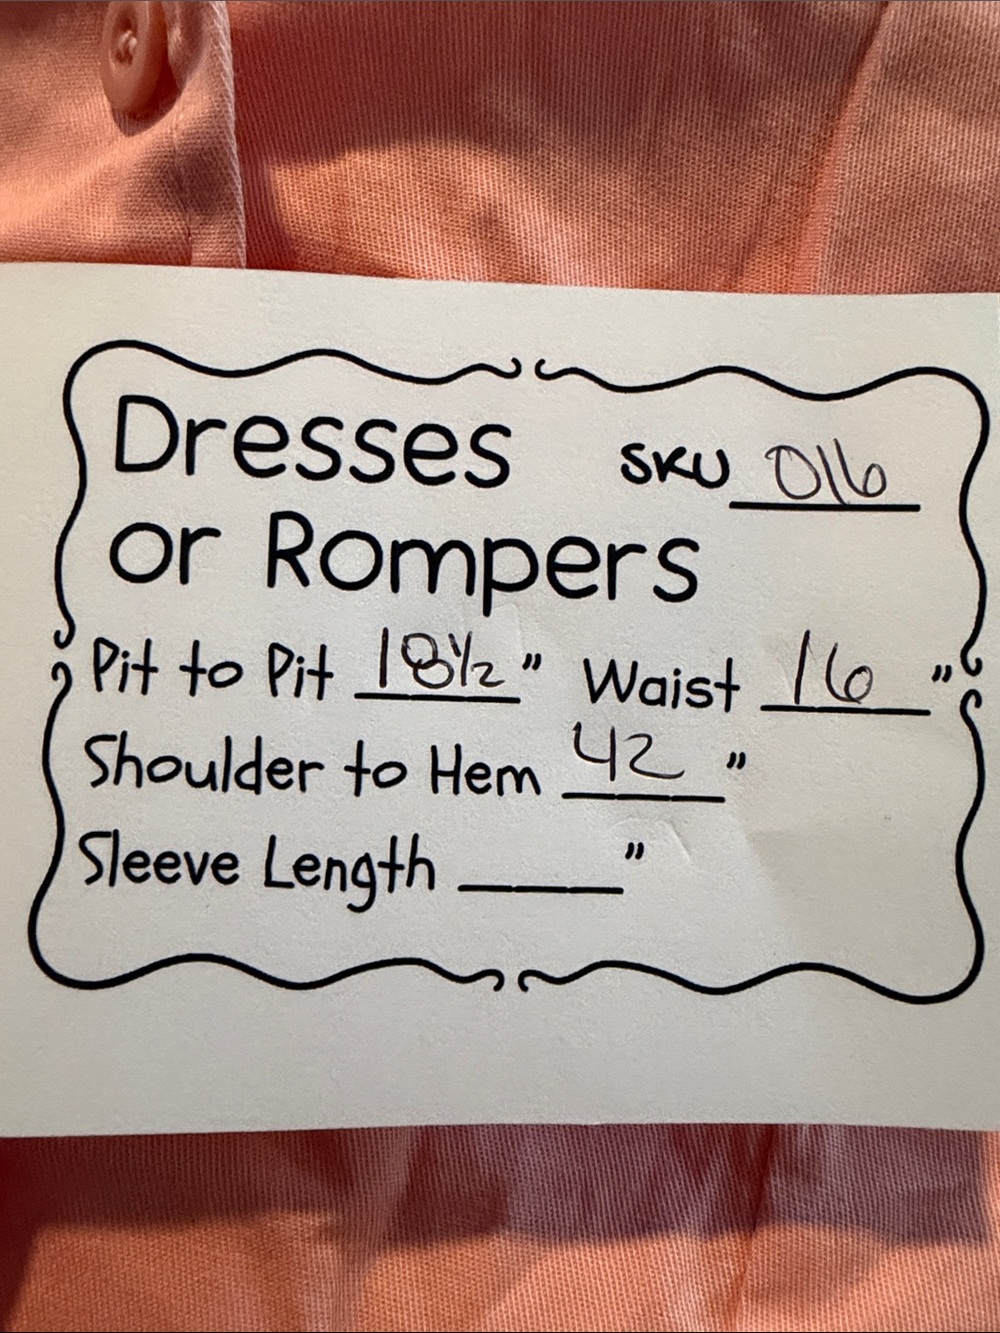 Dresses SKU 016
or Rompers
Pit to Pit 18½" Waist 16"
Shoulder to Hem 42"
Sleeve Length ____"